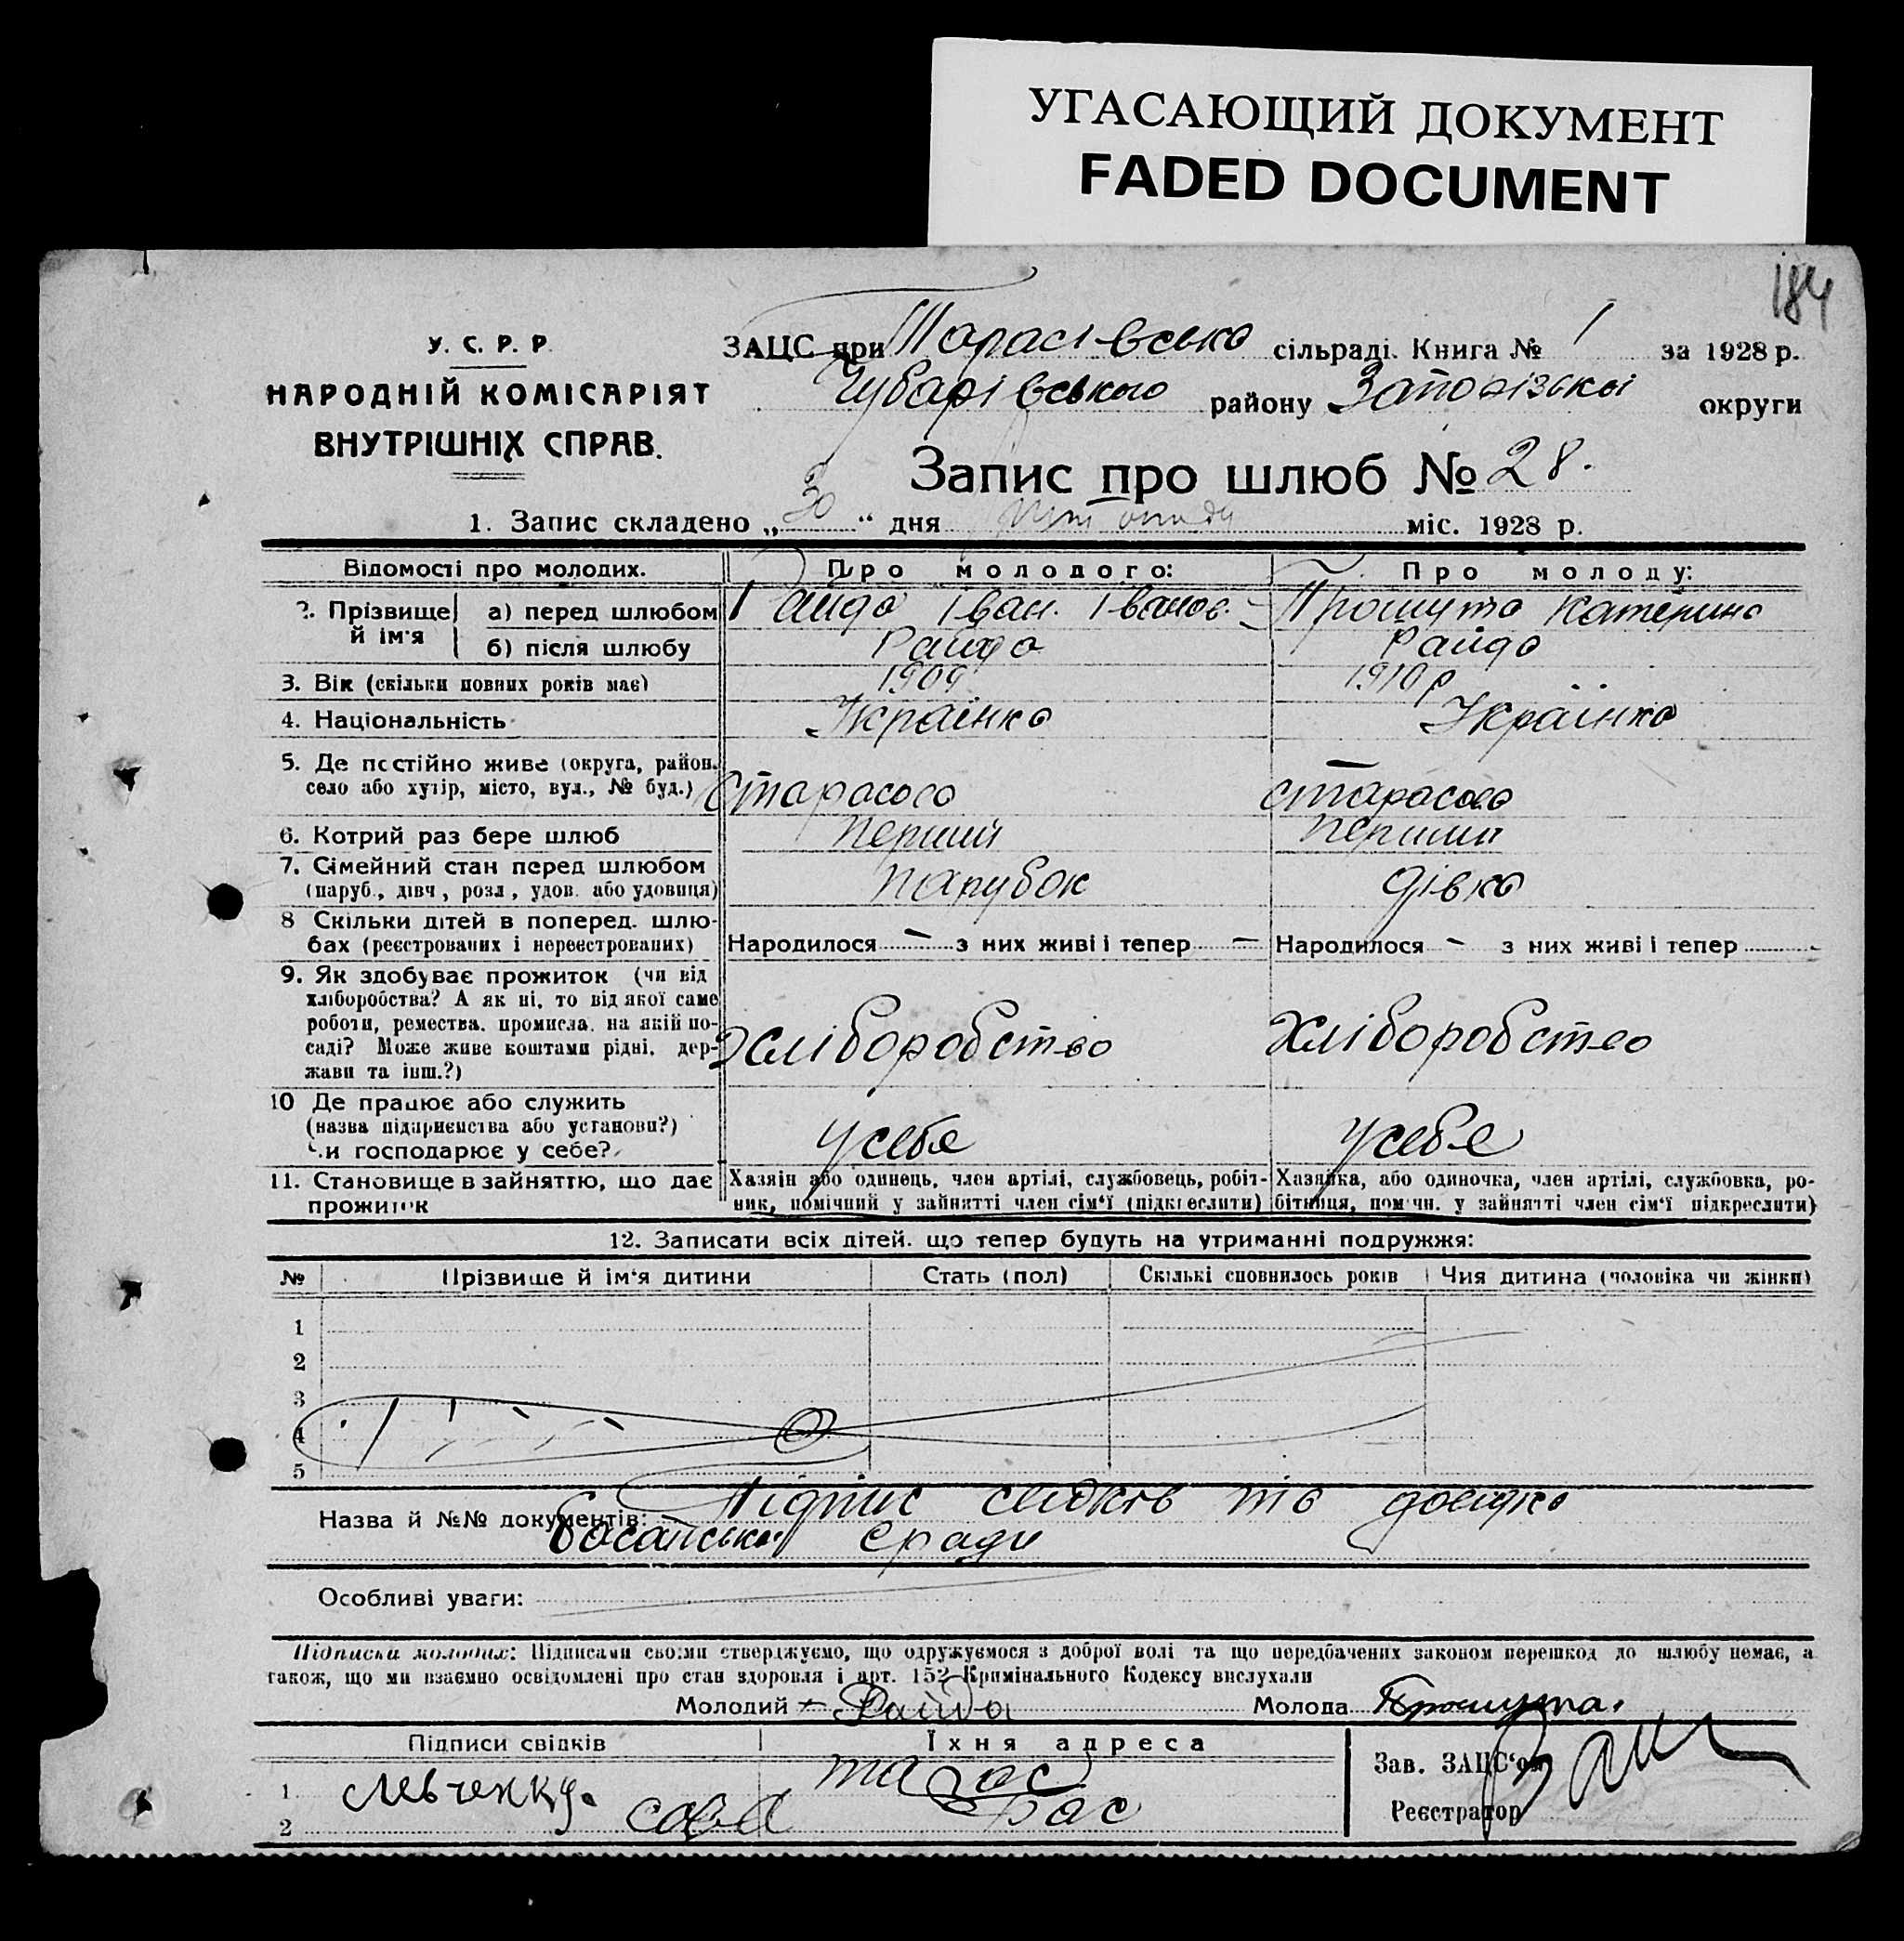 УГАСАЮЩИЙ ДОКУМЕНТ
FADED DOCUMENT
184
У. С. Р. Р.
НАРОДНІЙ КОМІСАРІЯТ
ВНУТРІШНІХ СПРАВ.
ЗАЦС при Тарасівська сільраді. Книга № 1 за 1928 р.
Чубарівського району Запорізької округи
Запис про шлюб № 28.
1. Запис складено „ 30 “ дня міс. 1928 р.
Відомості про молодих. Про молодого: Про молоду:
2. Прізвище й ім'я
а) перед шлюбом Райда Іван. Іванов. Прошута Катерина
б) після шлюбу Райда Райда
3. Вік (скільки повних років має) 1909 1910 р
4. Національність Українка Українка
5. Де постійно живе (округа, район.
село або хутір, місто, вул., № буд.) старасова старасова
6. Котрий раз бере шлюб перший перший
7. Сімейний стан перед шлюбом
(паруб., дівч., розл., удов. або удовиця) парубок дівка
8 Скільки дітей в поперед. шлю-
бах (реєстрованих і нереєстрованих) Народилося – з них живі і тепер – Народилося – з них живі і тепер
9. Як здобуває прожиток (чи від
хліборобства? А як ні, то від якої саме
роботи, ремества, промисла, на якій по-
саді? Може живе коштами рідні, дер-
жави та інш.?) Хліборобство Хліборобство
10 Де працює або служить
(назва підприємства або установи?)
чи господарює у себе? усебе усебе
11. Становище в зайняттю, що дає
прожиток
Хазяін або одинець, член артілі, службовець, робіт-
ник, помічний у зайнятті член сім'ї (підкреслити)
Хазяйка, або одиночка, член артілі, службовка, ро-
бітниця, помічн. у зайнятті член сім'ї підкреслити)
12. Записати всіх дітей. що тепер будуть на утриманні подружжя:
№ Прізвище й ім'я дитини Стать (пол) Скількі сповнилось років Чия дитина (чоловіка чи жінки)
1
2
3
4
5
Назва й №№ документів: Підпис свідків та довідка
Басанської сради
Особливі уваги:
Підписи молодих: Підписами своіми стверджуємо, що одружуємося з доброї волі та що передбачених законом перешкод до шлюбу немає, а
також, що ми взаємно освідомлені про стан здоровля і арт. 152 Кримінального Кодексу вислухали
Молодий Райда Молода Прошута.
Підписи свідків Їхня адреса
Зав. ЗАЦС'ом
1 Левченко
Реєстратор
2 сава